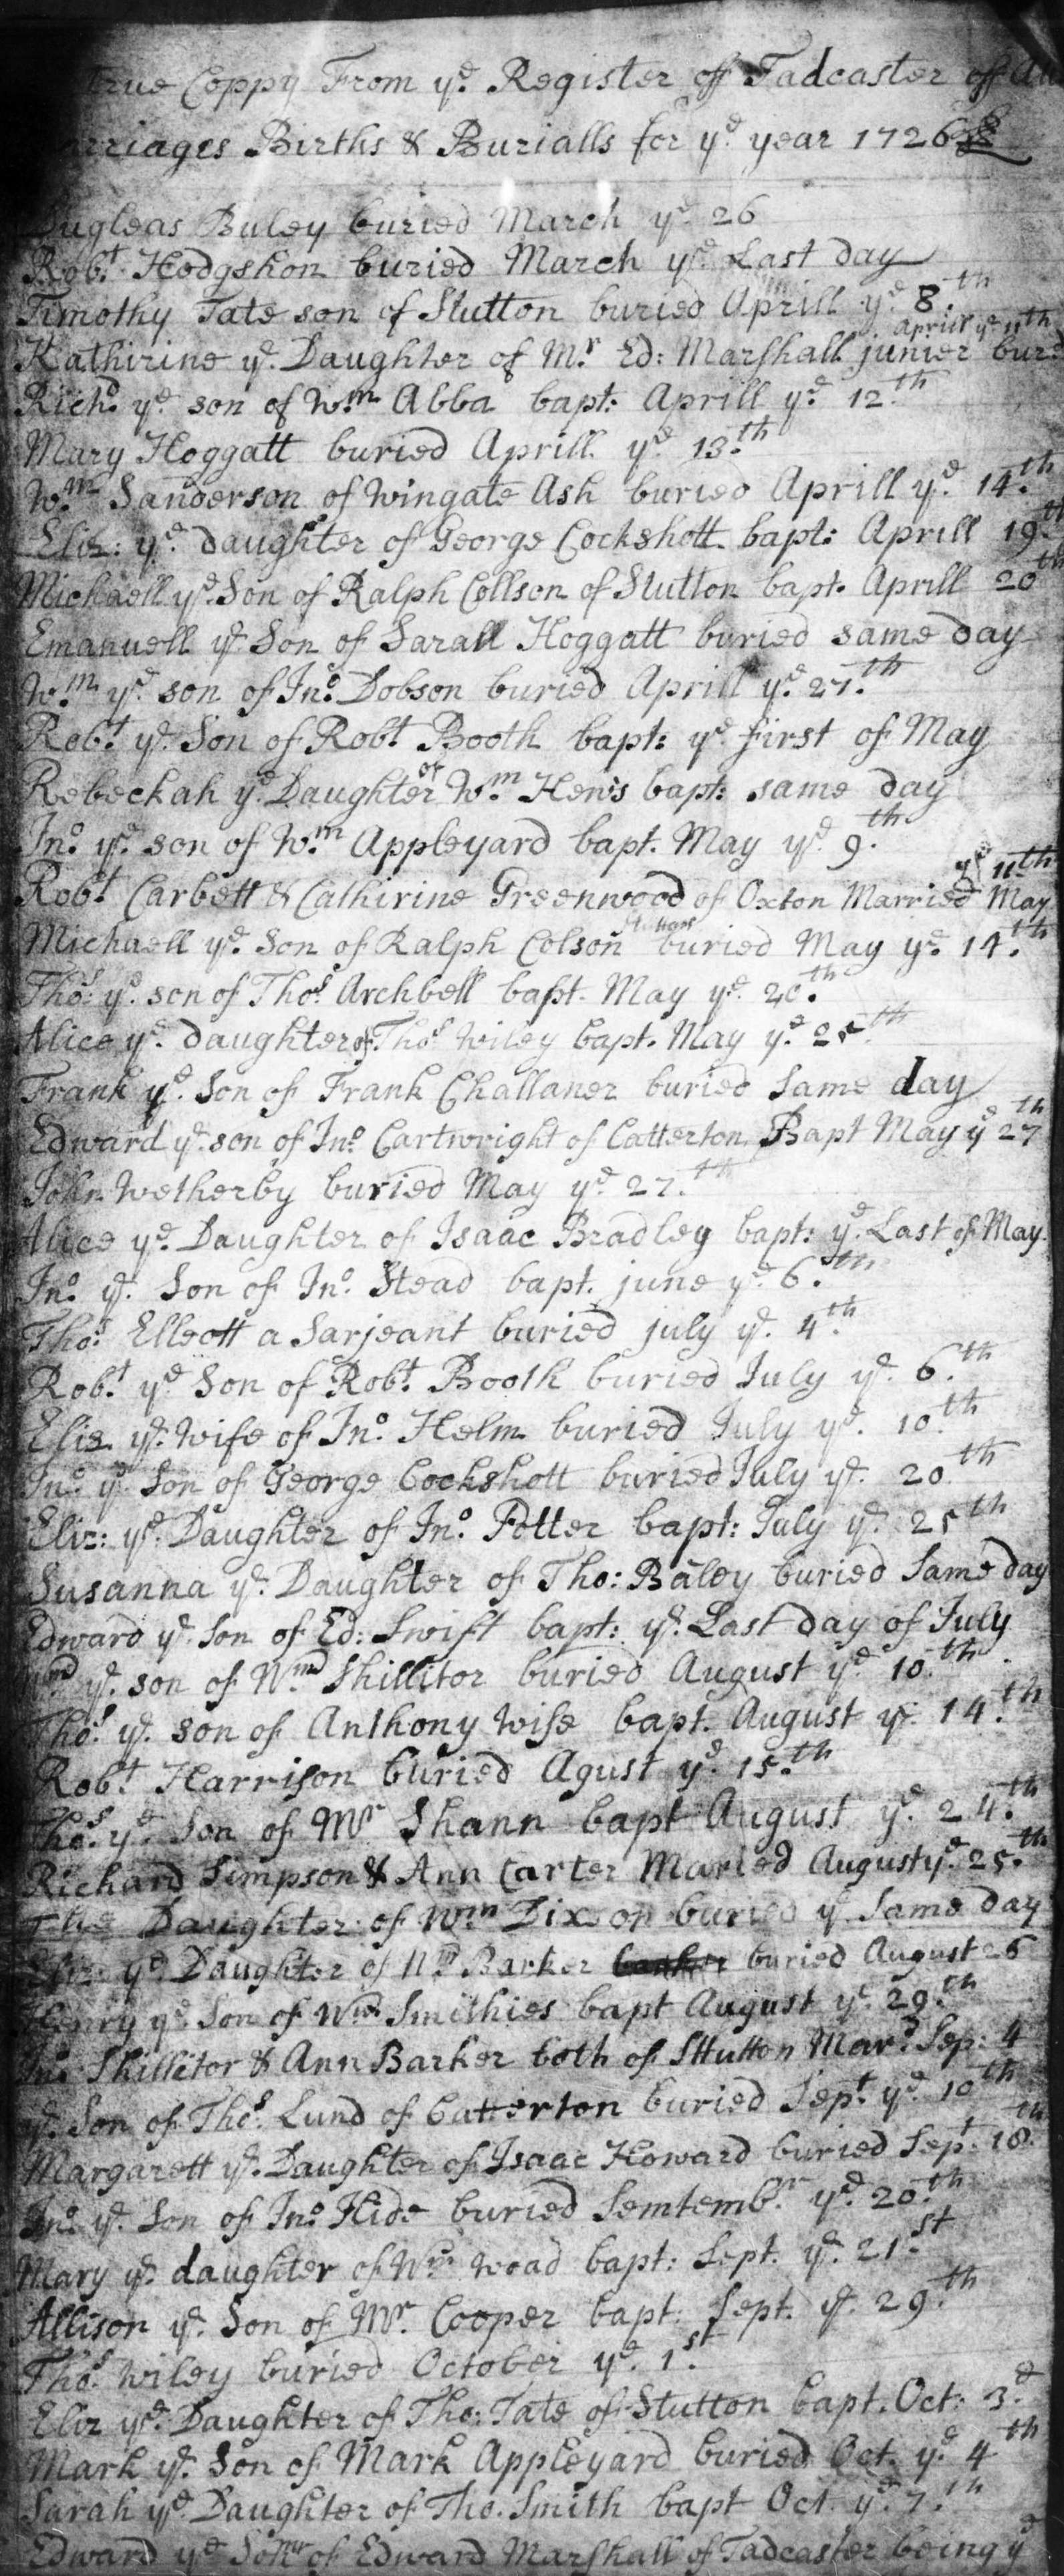 True Coppy From yᵉ Register off Tadcaster off All
arriages Births & Burialls for yᵉ year 1726
ugleas Buley buried March yᵉ 26
Robᵗ Hodgshon buried March yᵉ Last day
Timothy Tate son of Stutton buried Aprill yᵉ 8.ᵗʰ
Kathirine yᵉ Daughter of Mʳ Ed: Marshall junier bur: Aprill yᵉ 11ᵗʰ
Richᵈ yᵉ son of Wᵐ Abba bapt: Aprill yᵉ 12.ᵗʰ
Mary Hoggatt buried Aprill yᵉ 13.ᵗʰ
Wᵐ Sanderson of Wingate Ash buried Aprill yᵉ 14.ᵗʰ
Eliz: yᵉ daughter of George Cockshott bapt: Aprill 19ᵗʰ
Michaell yᵉ Son of Ralph Collson of Stutton bapt. Aprill 20ᵗʰ
Emanuell yᵉ Son of Sarall Hoggatt buried same day
Wᵐ yᵉ son of Jnᵒ Dobson buried Aprill yᵉ 27.ᵗʰ
Robᵗ yᵉ Son of Robᵗ Booth bapt: yᵉ first of May
Rebeckah yᵉ Daughter of Wᵐ Hews bapt: same day
Jnᵒ yᵉ son of Wᵐ Appleyard bapt. May yᵉ 9.ᵗʰ
Robᵗ Carbett & Cathirine Greenwood of Oxton Married May yᵉ 11ᵗʰ
Michaell yᵉ Son of Ralph Colson Stutton buried May yᵉ 14.ᵗʰ
Thoˢ yᵉ son of Thoˢ Archbell bapt. May yᵉ 20.ᵗʰ
Alice yᵉ daughter of Thoˢ Wiley bapt. May yᵉ 25ᵗʰ
Frank yᵉ Son of Frank Challaner buried Same day
Edward yᵉ son of Jnᵒ Cartwright of Catterton Bapt May yᵉ 27ᵗʰ
John Wetherby buried May yᵉ 27.ᵗʰ
Alice yᵉ Daughter of Isaac Bradley bapt: yᵉ Last of May.
Jnᵒ yᵉ Son of Jnᵒ Stead bapt. june yᵉ 6.ᵗʰ
Thoˢ Elleott a Sarjeant buried july yᵉ 4.ᵗʰ
Robᵗ yᵉ Son of Robᵗ Booth buried July yᵉ 6.ᵗʰ
Eliz yᵉ Wife of Jnᵒ Helm buried July yᵉ 10.ᵗʰ
Jnᵒ yᵉ Son of George Cockshott buried July yᵉ 20.ᵗʰ
Eliz: yᵉ Daughter of Jnᵒ Potter bapt: July yᵉ 25ᵗʰ
Susanna yᵉ Daughter of Tho: Baley buried Same day
Edward yᵉ Son of Ed: Swift bapt: yᵉ Last day of July
Wᵐ yᵉ son of Wᵐ Shillitor buried August yᵉ 10.ᵗʰ
Thoˢ yᵉ son of Anthony Wise bapt. August yᵉ 14.ᵗʰ
Robᵗ Harrison buried Agust yᵉ 15.ᵗʰ
Thoˢ yᵉ Son of Mʳ Shann bapt August yᵉ 24.ᵗʰ
Richard Simpson & Ann Carter Maried August yᵉ 25.ᵗʰ
The Daughter of Wᵐ Dixon buried yᵉ Same day
Eliz: yᵉ Daughter of Wᵐ Barker buried August 26
Henry yᵉ Son of Wᵐ Smithies bapt August yᵉ 29.ᵗʰ
Jnᵒ Shillitor & Ann Barker both of Stutton Marᵈ Sep: 4
yᵉ Son of Thoˢ Lund of Catterton buried Sepᵗ yᵉ 10ᵗʰ
Margarett yᵉ Daughter of Isaac Howard buried Sepᵗ 18.ᵗʰ
Jnᵒ yᵉ Son of Jnᵒ Hide buried Semtembʳ yᵉ 20.ᵗʰ
Mary yᵉ daughter of Wᵐ Woad bapt: Sept. yᵉ 21.ˢᵗ
Allison yᵉ Son of Mʳ Cooper bapt: Sept. yᵉ 29.ᵗʰ
Thoˢ Wiley buried October yᵉ 1.ˢᵗ
Eliz yᵉ Daughter of Tho: Tate of Stutton bapt. Oct: 3.ᵈ
Mark yᵉ Son of Mark Appleyard buried Oct. yᵉ 4ᵗʰ
Sarah yᵉ Daughter of Tho. Smith bapt Oct. yᵉ 7.ᵗʰ
Edward yᵉ Son of Mʳ Edward Marshall of Tadcaster being yᵉ